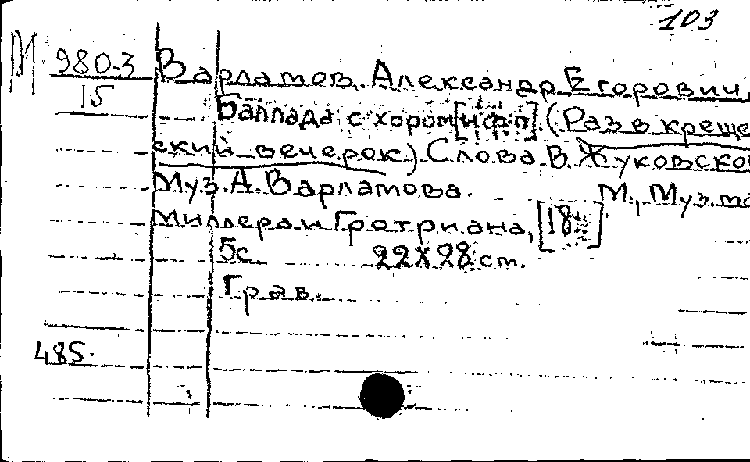 103
М 980-3 Варламов. Александр Егорович.
15
Баллада с хором [и фп]. (Раз в креще
ский вечерок). Слова В. Жуковско
Муз. А. Варламова. М., Муз. ма
Миллера и Гротриана, [18
5с. 22х28 см.
Грав.
485.